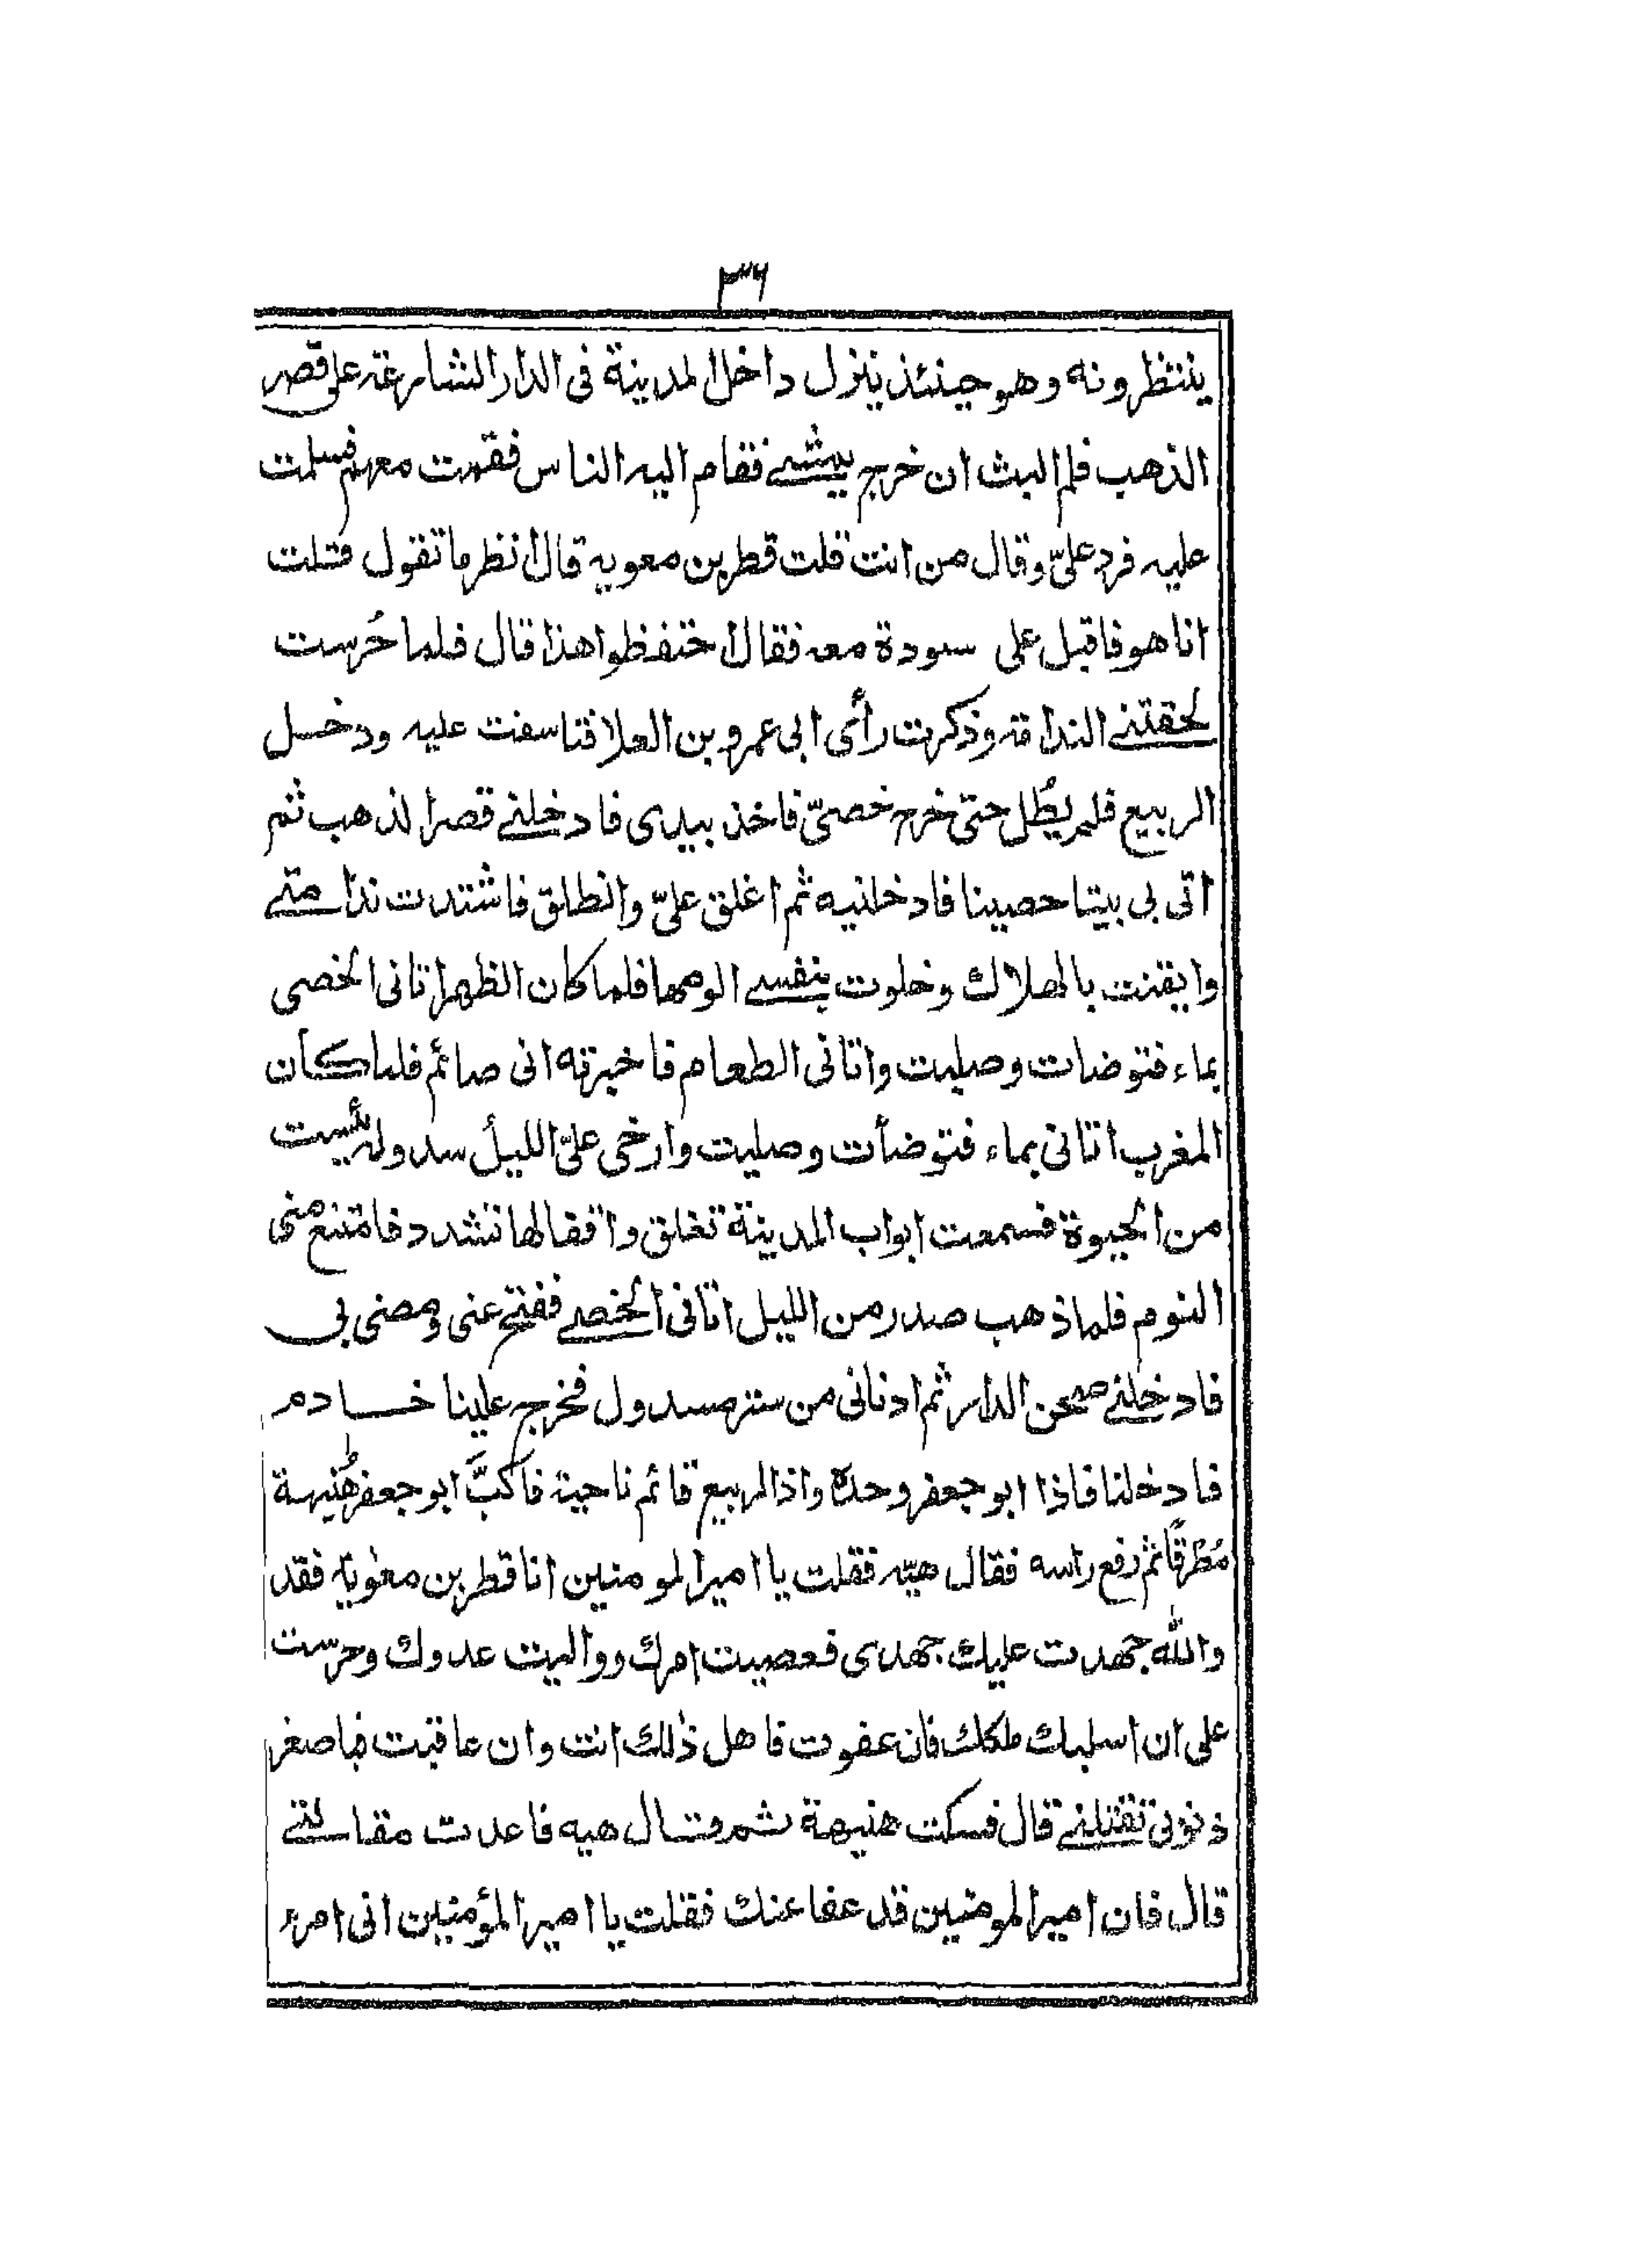 ٣٦
ينتظرونه وهو حينئذ ينزل داخل المدينة فى الدار الشارعة على قصر
الذهب فلم البث ان خرج يمشى فقام اليه الناس فقمت معهم فسلمت
عليه فرد علىّ وقال من انت قلت قطر بن معويه قال انظر ما تقول فقلت
انا هو فاقبل على سودة معه فقال احتفظوا هذا قال فلما حُرست
لحقتنى الندامة وذكرت رأى ابى عمرو بن العلا فتاسفت عليه ودخل
الربيع فلم يطُل حتى خرج خصىّ فاخذ بيدى فادخلنى قصر الذهب ثم
اتى بى بيتا حصينا فادخلنيه ثم اغلق علىّ وانطلق فاشتدت ندامتى
وايقنت بالهلاك وخلوت بنفسى الومها فلما كان الظهر اتانى الخصى
بماء فتوضات وصليت واتانى الطعام فاخبرته انى صائم فلما كان
المغرب اتانى بماء فتوضأت وصليت وارخى علىّ الليل سدوله يئست
من الحيوة فسمعت ابواب المدينة تغلق واقفالها تشدد فامتنع منى
النوم فلما ذهب صدر من الليل اتانى الخصى ففتح عنى ومضى بى
فادخلنى صحن الدار ثم ادنانى من ستر مسدول فخرج علينا خادم
فادخلنا فاذا ابو جعفر وحده واذا الربيع قائم ناحية فاكبَّ ابو جعفر هُنيهة
مُطرقًا ثم رفع راسه فقال هيّه فقلت يا امير المومنين انا قطر بن معوية فقد
والله جهدت عليك جهدى فعصيت امرك وواليت عدوك وحرست
على ان اسلبك ملكك فان عفوت فاهل ذلك انت وان عاقبت فباصغر
ذنوبى تقتلنى قال فسكت هنيهة ثم قال هيه فاعدت مقالتى
قال فان امير المومنين قد عفا عنك فقلت يا امير المؤمنين انى امرء